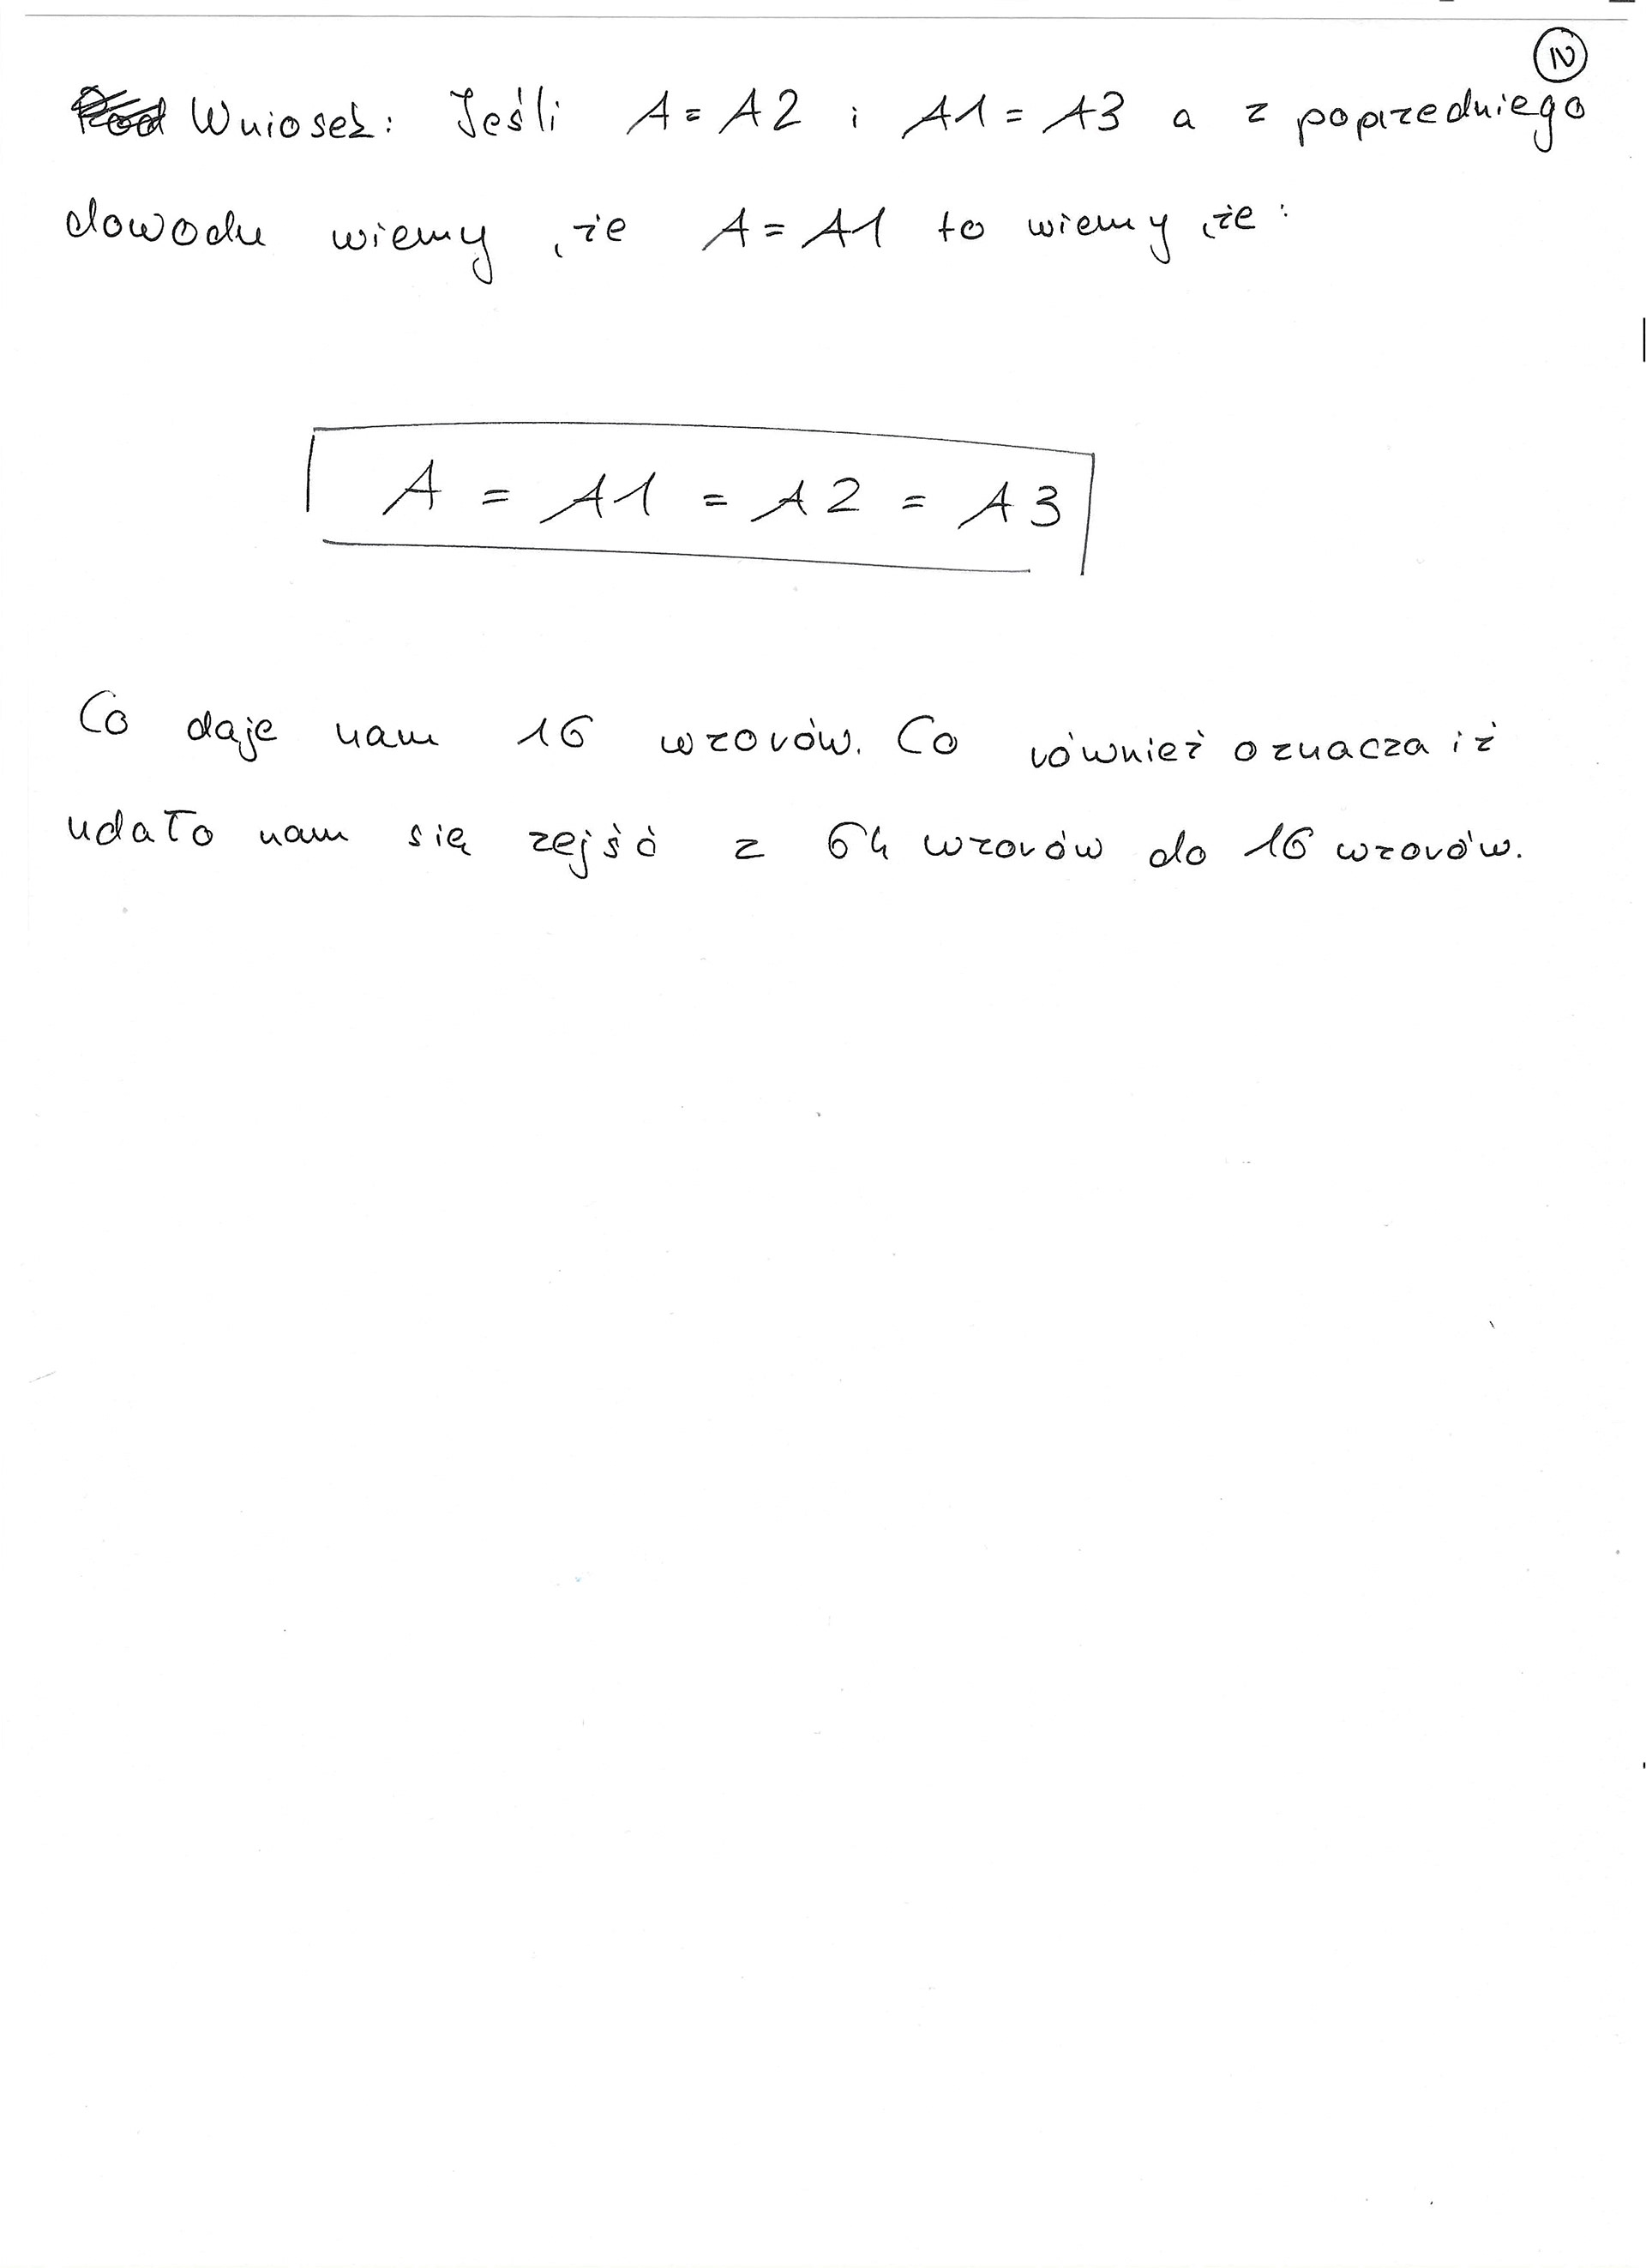 IV
Wniosek: Jeśli A = A2 i A1 = A3 a z poprzedniego
dowodu wiemy, że A = A1 to wiemy, że:
A = A1 = A2 = A3
Co daje nam 16 wzorów. Co również oznacza iż
udało nam się zejść z 64 wzorów do 16 wzorów.